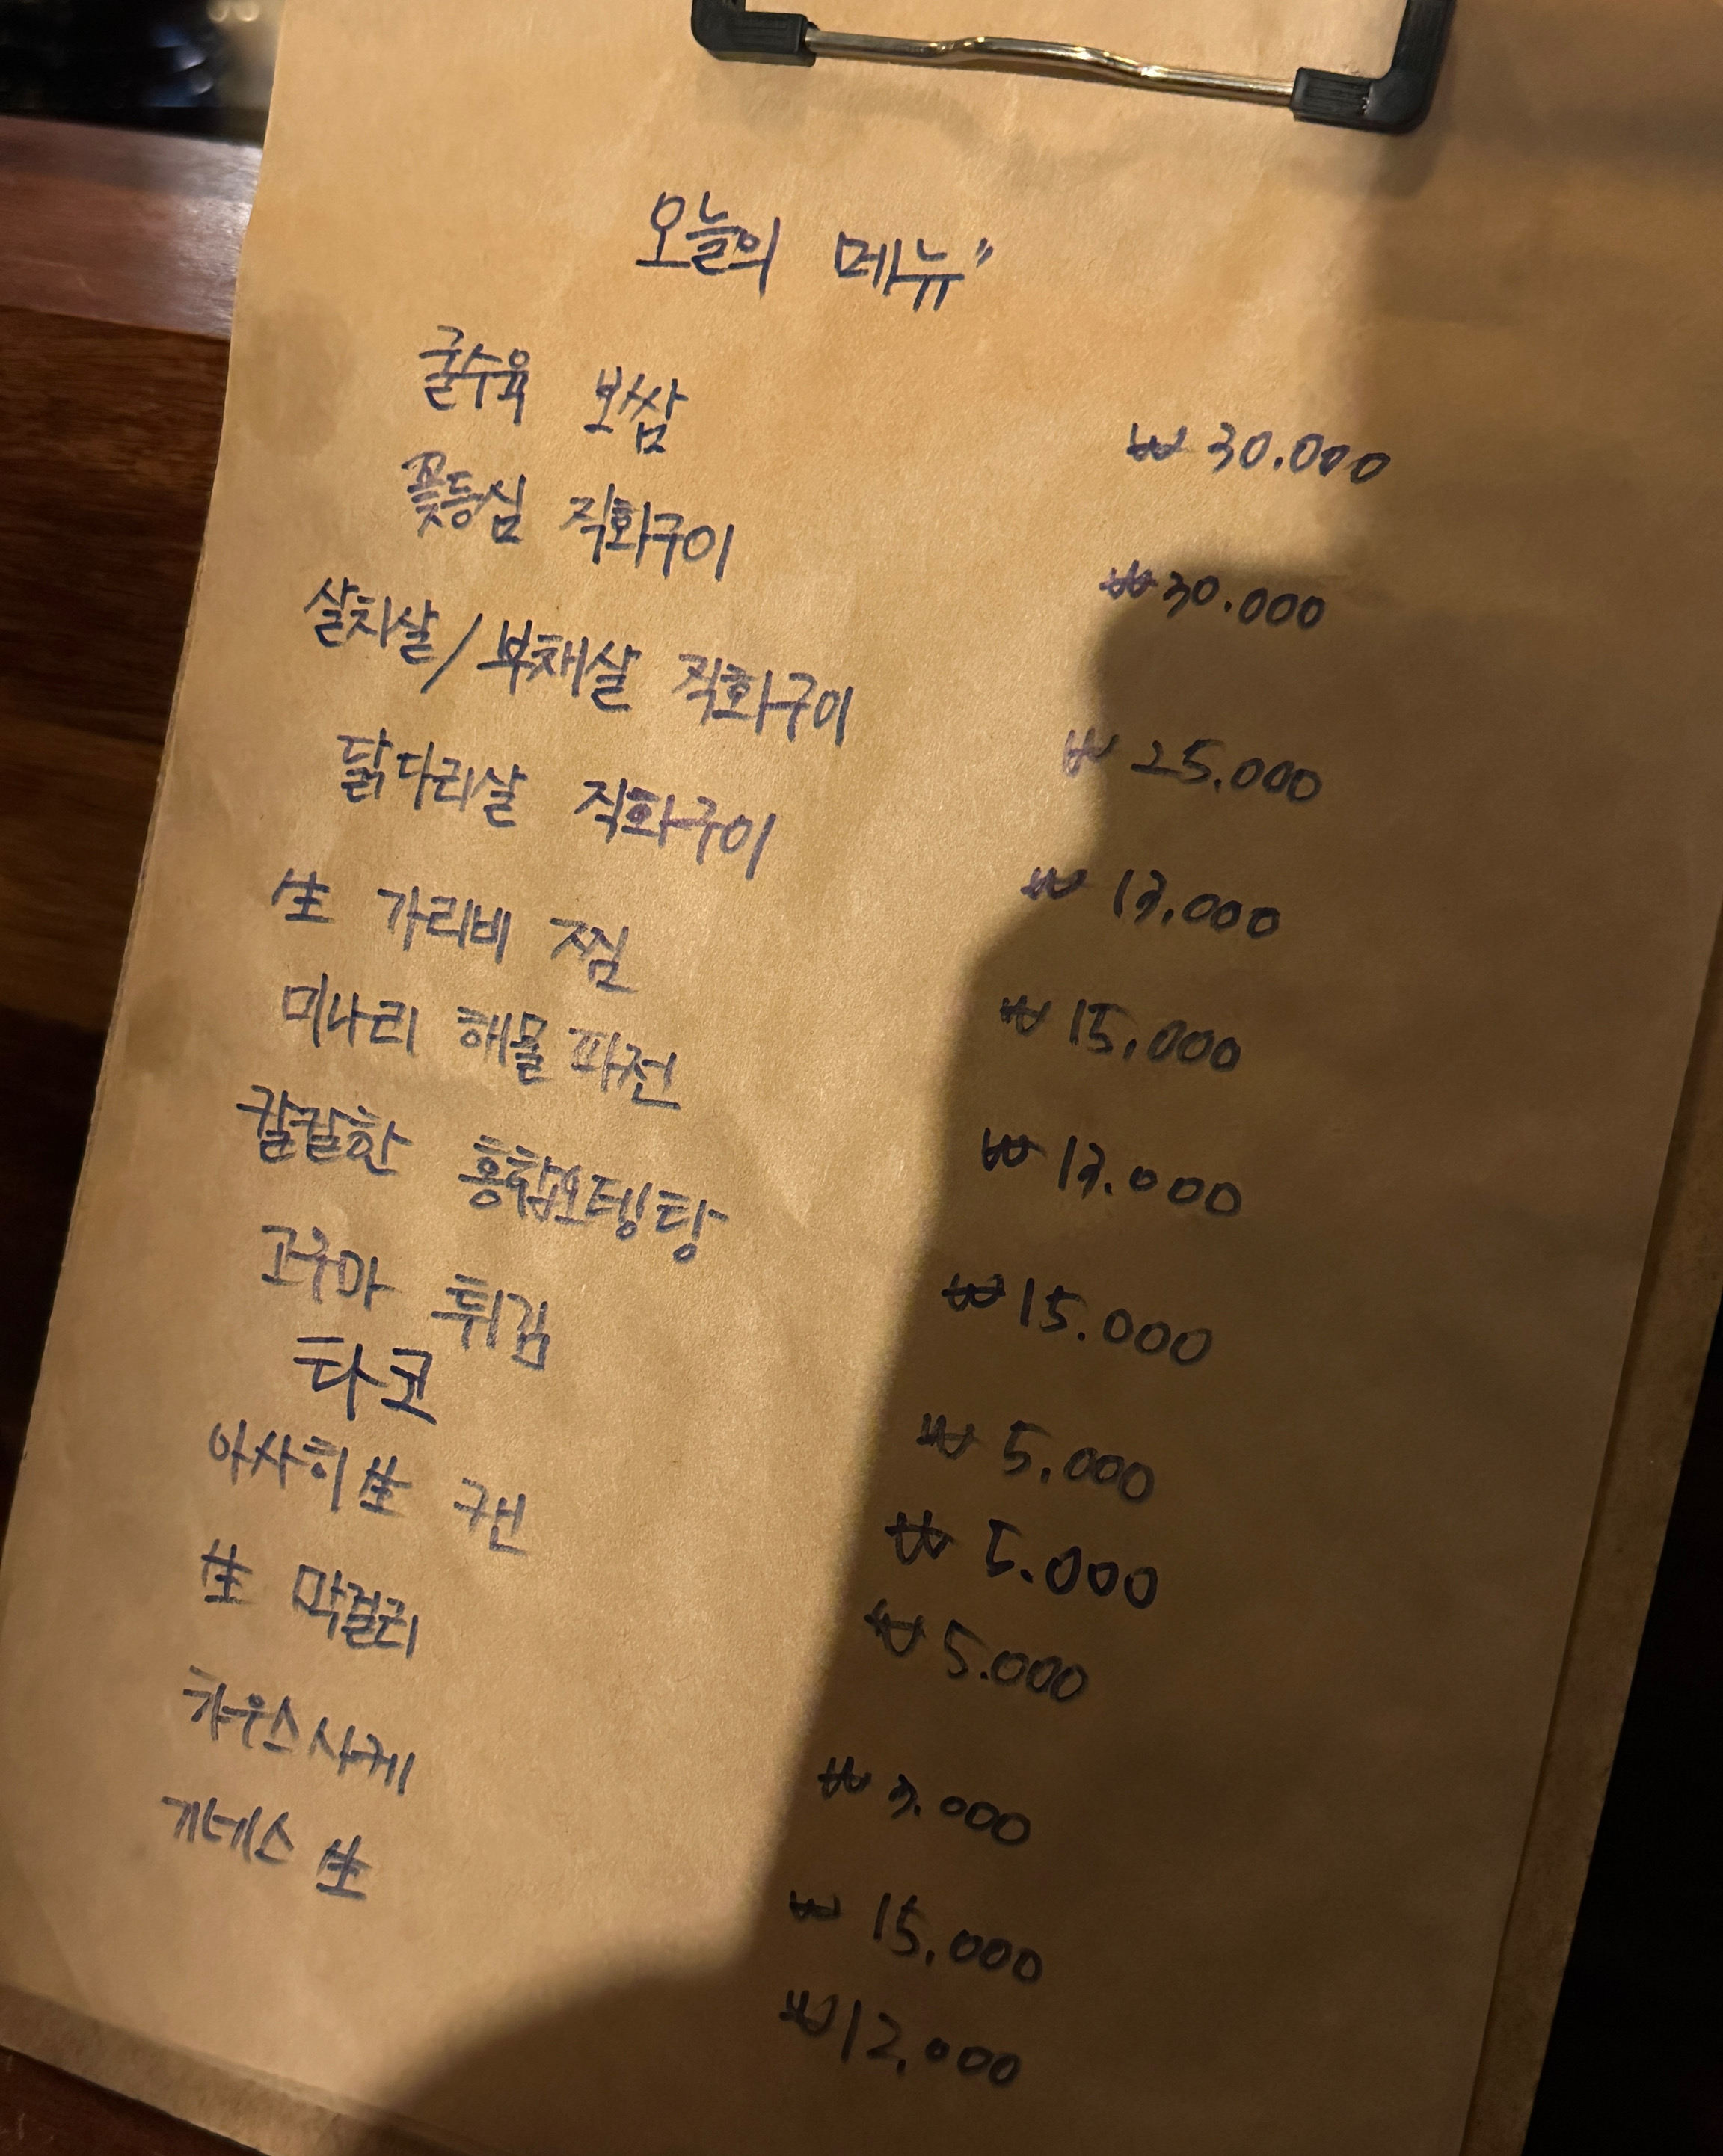 오늘의 메뉴"
굴수육 보쌈 ₩ 30.000
꽃등심 직화구이 ₩30.000
살치살/부채살 직화구이 ₩ 25.000
닭다리살 직화구이 ₩ 13.000
生 가리비 찜 ₩ 15.000
미나리 해물파전 ₩ 13.000
칼칼한 홍합오뎅탕 ₩15.000
고구마 튀김 ₩ 5.000
타코 ₩ 5.000
아사히生 캔 ₩ 5.000
生 막걸리 ₩ 3.000
하우스사케 ₩ 15.000
기네스 生 ₩12.000